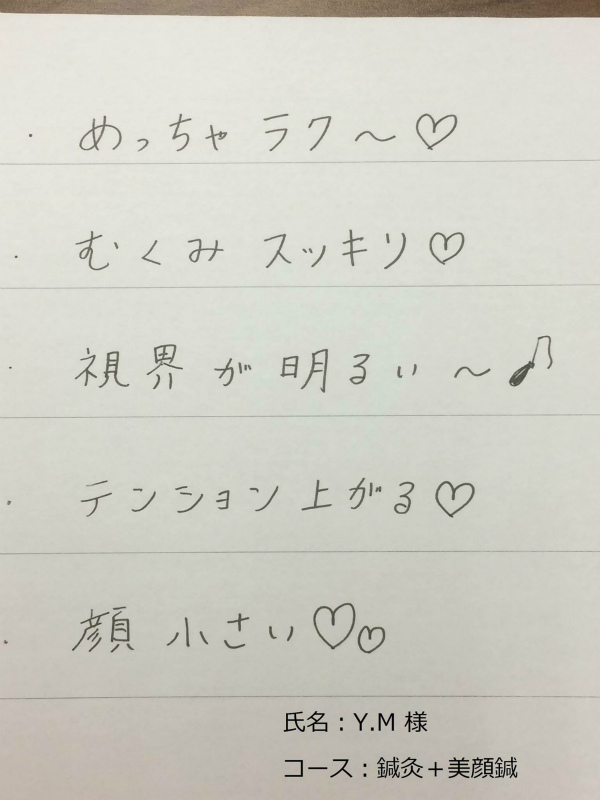 ・ めっちゃ ラク～♡
・ むくみ スッキリ♡
・ 視界が明るい～♪
・ テンション上がる♡
・ 顔 小さい♡♡
氏名：Y.M 様
コース：鍼灸＋美顔鍼